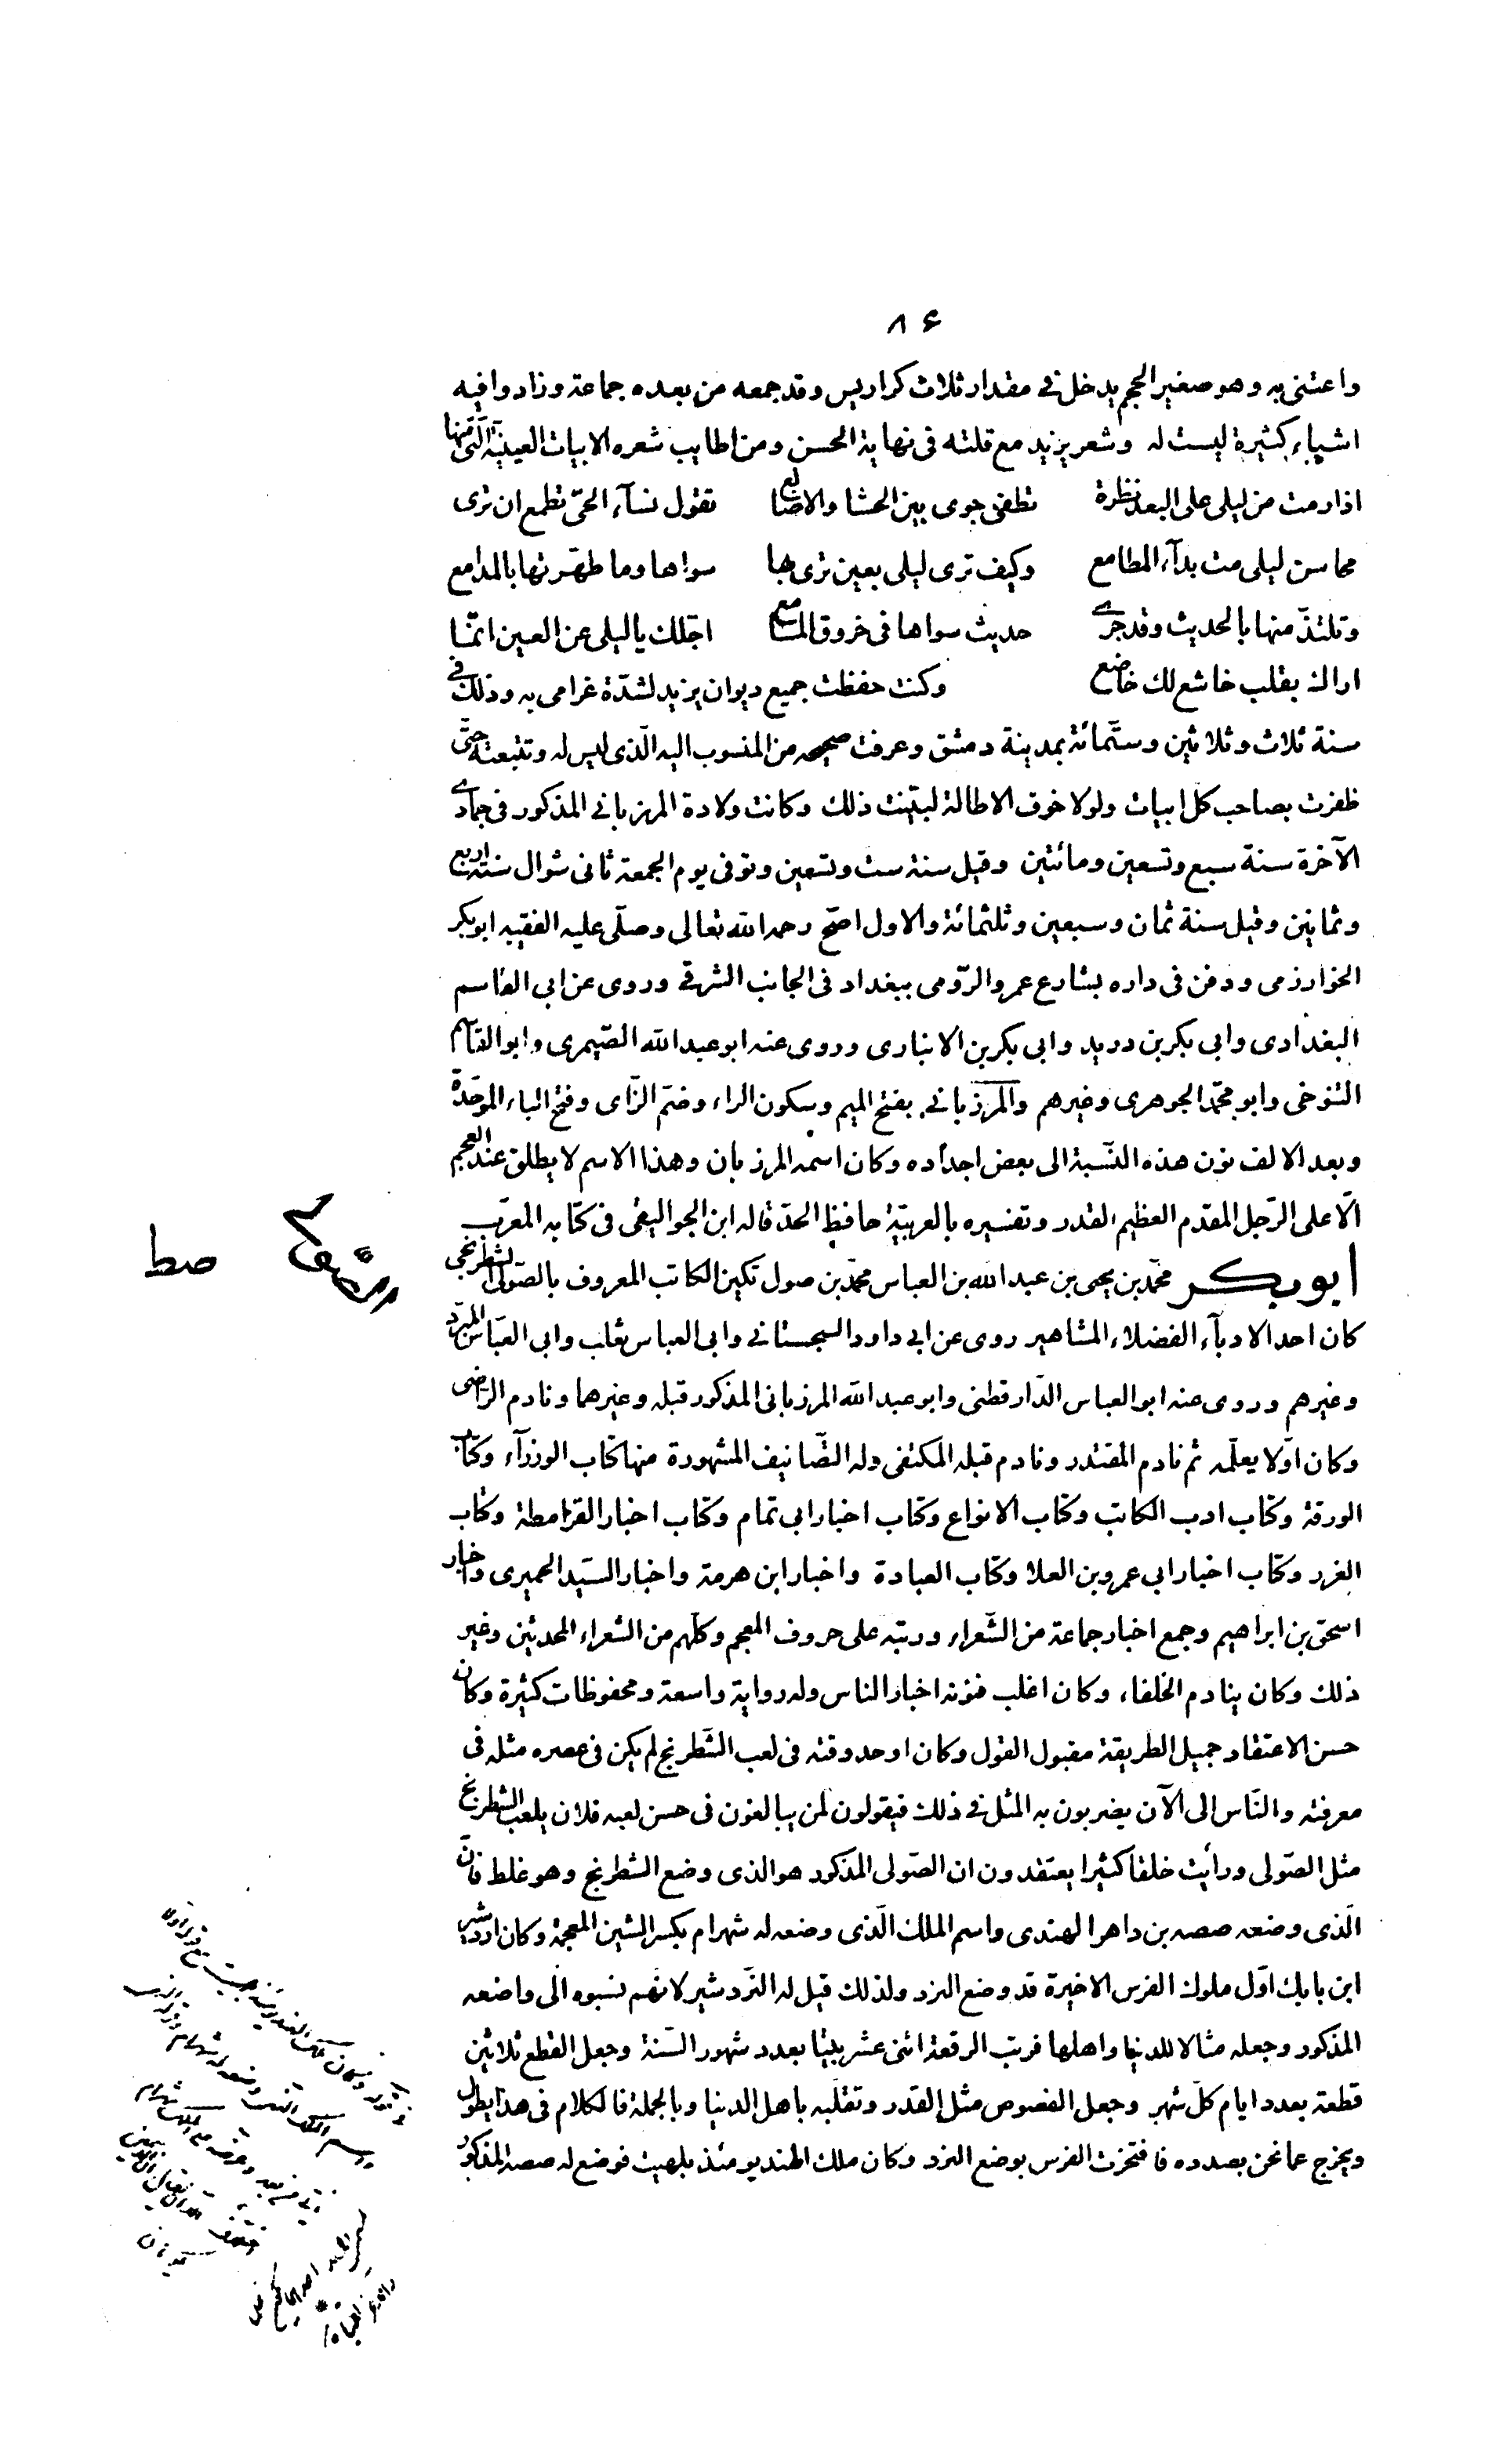 ۸۶
واعتنى به وهو صغير الحجم يدخل فى مقدار ثلاث كراريس وقد جمعه من بعده جماعة وزادوا فيه
اشياء كثيرة ليست له وشعر يزيد مع قلته فى نهاية الحسن ومن اطايب شعره الابيات العينية الّتى منها
اذا رمت من ليلى على البعد نظرة تطفى جوى بين الحشا والاضالع تقول نسآء الحىّ تطمع ان ترى
محاسن ليلى مت بدآء المطامع وكيف ترى ليلى بعين ترى بها سواها وما طهّرتها بالمدامع
وتلتذّ منها بالحديث وقد جرى حديث سواها فى خروق المسامع اجلّك يا ليلى عن العين انّما
اراك بقلب خاشع لك خاضع وكنت حفظت جميع ديوان يزيد لشدّة غرامى به وذلك فى
سنة ثلاث وثلاثين وستّمائة بمدينة دمشق وعرفت صحيحه من المنسوب اليه الّذى ليس له وتتبعته حتّى
ظفرت بصاحب كل ابيات ولولا خوف الاطالة لبيّنت ذلك وكانت ولادة المرزبانى المذكور فى جمادى
الآخرة سنة سبع وتسعين ومائتين وقيل سنة ست وتسعين وتوفى يوم الجمعة ثانى شوال سنة اربع
وثمانين وقيل سنة ثمان وسبعين وثلثمائة والاول اصحّ رحمه الله تعالى وصلّى عليه الفقيه ابو بكر
الخوارزمى ودفن فى داره بشارع عمرو الرّومى ببغداد فى الجانب الشرقى وروى عن ابى القاسم
البغدادى وابى بكر بن دريد وابى بكر بن الانبارى وروى عنه ابو عبد الله الصّيمرى وابو القاسم
التنوخى وابو محمّد الجوهرى وغيرهم والمرزبانى بفتح الميم وسكون الراء وضمّ الزّاى وفتح الباء الموحّدة
وبعد الالف نون هذه النّسبة الى بعض اجداده وكان اسمه المرزبان وهذا الاسم لا يطلق عند العجم
الّا على الرّجل المقدم العظيم القدر وتفسيره بالعربيّة حافظ الحدّ قاله ابن الجواليقى فى كتابه المعرّب
ابو بكر محمّد بن يحيى بن عبد الله بن العباس محمّد بن صول تكين الكاتب المعروف بالصّولى الشطرنجى
صط
كان احد الادبآء الفضلاء المشاهير روى عن ابى داود السجستانى وابى العباس ثعلب وابى العبّاس المبرّد
وغيرهم وروى عنه ابو العباس الدّارقطنى وابو عبد الله المرزبانى المذكور قبله وغيرهما ونادم الرّاضى
وكان اوّلا يعلّمه ثم نادم المقتدر ونادم قبله المكتفى وله التّصانيف المشهورة منها كتاب الوزرآء وكتاب
الورقة وكتاب ادب الكاتب وكتاب الانواع وكتاب اخبار ابى تمام وكتاب اخبار القرامطة وكتاب
الغرر وكتاب اخبار ابى عمرو بن العلا وكتاب العبادة واخبار ابن هرمة واخبار السّيد الحميرى واخبار
اسحق بن ابراهيم وجمع اخبار جماعة من الشّعراء ورتبه على حروف المعجم وكلّهم من الشعراء المحدثين وغير
ذلك وكان ينادم الخلفاء وكان اغلب فنونه اخبار الناس وله رواية واسعة ومحفوظات كثيرة وكان
حسن الاعتقاد جميل الطريقة مقبول القول وكان اوحد وقته فى لعب الشّطرنج لم يكن فى عصره مثله فى
معرفته والنّاس الى الآن يضربون به المثل فى ذلك فيقولون لمن يبالغون فى حسن لعبه فلان يلعب الشطرنج
مثل الصّولى ورأيت خلقا كثيرا يعتقدون ان الصّولى المذكور هو الذى وضع الشطرنج وهو غلط فانّ
الّذى وضعه صصه بن داهر الهندى واسم الملك الّذى وضعه له شهرام بكسر الشين المعجمة وكان اردشير
ابن بابك اوّل ملوك الفرس الاخيرة قد وضع النرد ولذلك قيل له النّردشير لانّهم نسبوه الى واضعه
المذكور وجعله مثالا للدنيا واهلها فرتب الرقعة اثنى عشر بيتا بعدد شهور السّنة وجعل القطع ثلاثين
قطعة بعدد ايام كلّ شهر وجعل الفصوص مثل القدر وتقلّبه باهل الدنيا وبالجملة فالكلام فى هذا يطول
ويخرج عما نحن بصدده فافتخرت الفرس بوضع النرد وكان ملك الهند يومئذ بلهيت فوضع له صصه المذكور